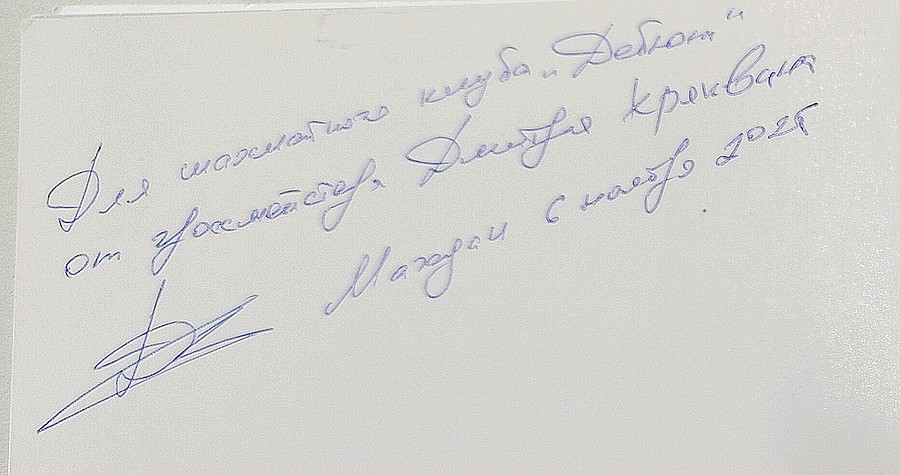 Для шахматного клуба „Дебют"
от гроссмейстера Дмитрия Кряквина
Магадан 6 ноября 2025